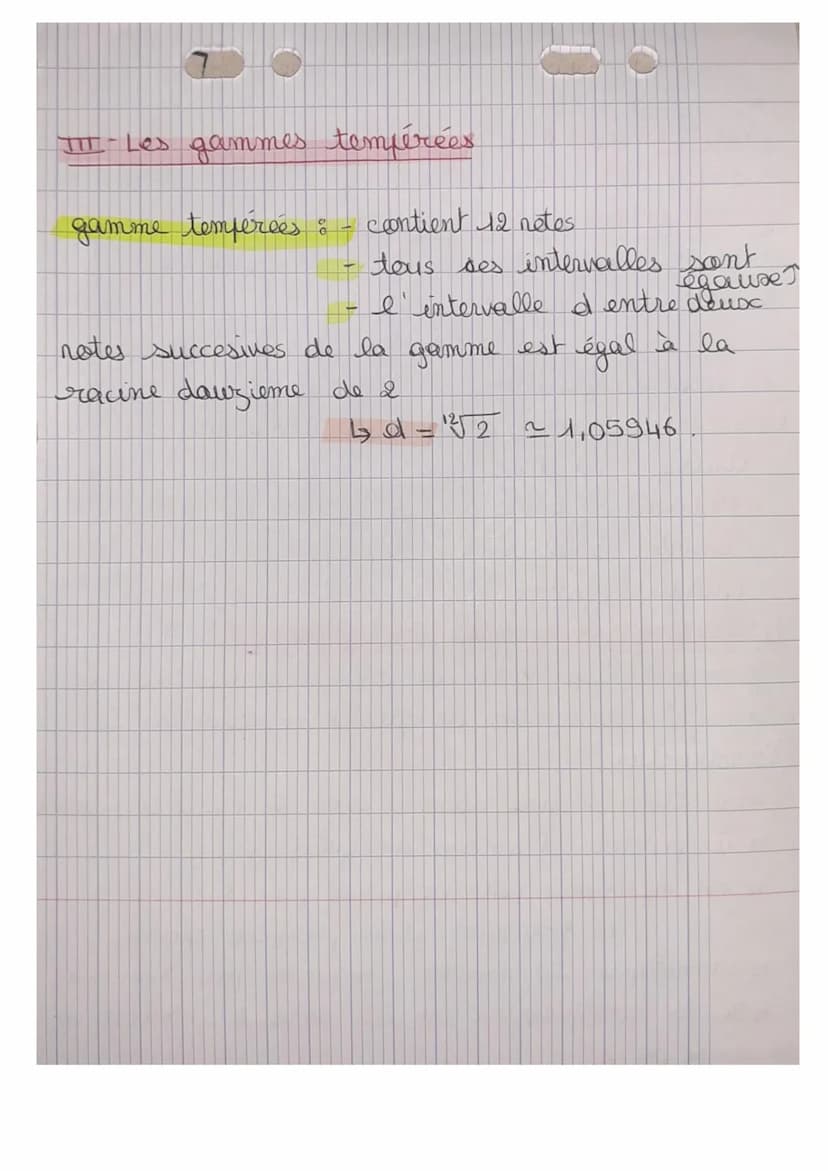 7
III - Les gammes tempérées
gamme tempérées : - contient 12 notes
- tous ses intervalles sont
égaux
- l'intervalle d entre deux
notes succesives de la gamme est égal à la
racine douzieme de 2
↳ d = ¹²√2 ≃ 1,05946.